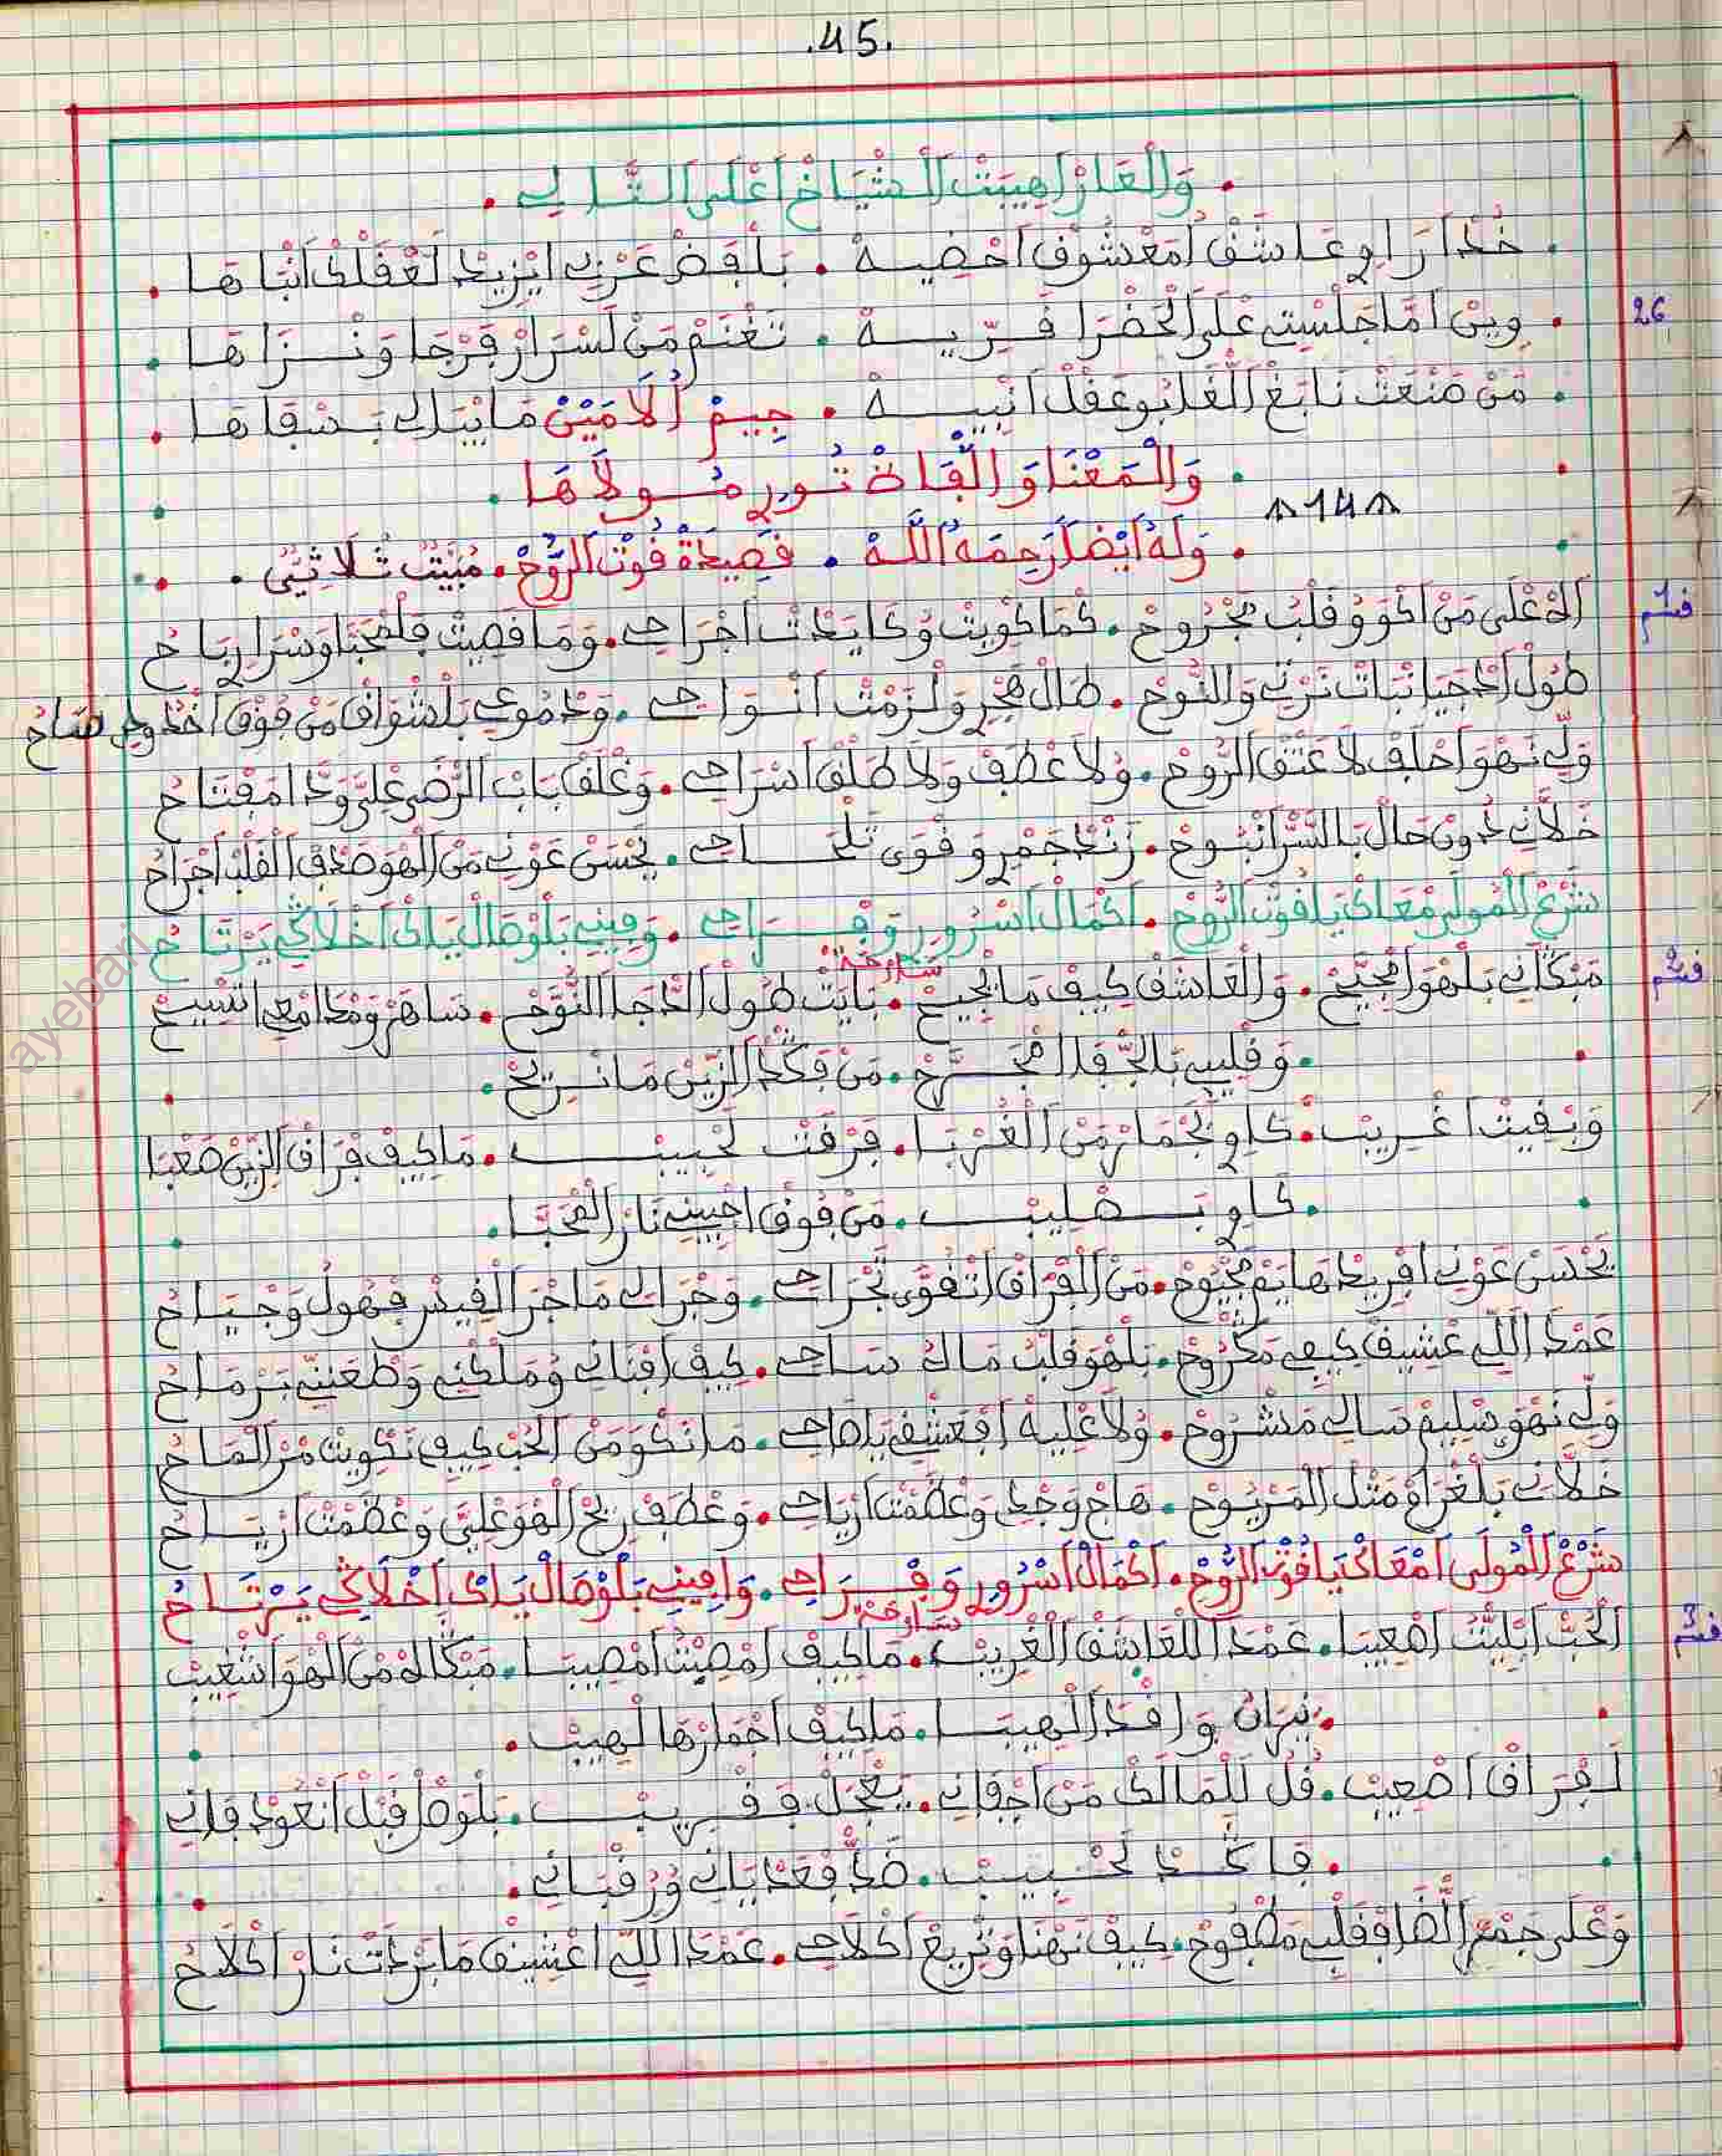 .45.
. وَالْعَارْ اهِيبَتْ الْشْيَاخْ اعْلَى التَّالِي .
. خُدْ ارَاوِي عَاشَقْ امَعْشُوقْ احْضِيهْ . بَلْفَضْ عَرْبِي ايْزِيدْ لَعْقَلْكْ انْبَاهَا .
26
. وِينْ امَّا جَلْسْتِي عْلَى الْحَضْرَا فَرِّيهْ . تَغْنَمْ مَنْ لَسْرَارْ فَرْجَا وَنْزَاهَا .
. مَنْ صَنْعَتْ نَابَغْ الْغَا بُوعَقْلْ انْبِيهْ . جِيمْ أُلَامَيْنْ مَا ايْبَالِي بَسْفَاهَا .
. وَالْمَعْنَا وَالْفَاظْ نُورِي مُولَاهَا .
^14^
. وَلَهُ أَيْضاً رَحِمَهُ اللَّهْ . قَصِيدَةْ قُوتْ الرُّوحْ . مُبَيَّتْ ثُلَاثِي .
قسم 1
الاهْ عْلَى مَنْ اكْوَوْ قَلْبُ مَجْرُوحْ . كْمَا كْوِيتْ وُكَايَدْتْ اجْرَاحِي . وَمَا قَصِيتْ فَلْمْحَبَّا وَسْرَارِي بَاحُ
طُولْ الدْجِيَا نْبَاتْ نَرْتِي وَالنُّوحْ . طَالْ هَجْرُو لَزَمْتْ انْوَاحِي . وَدْمُوعِي بَلْشْوَاقْ مَنْ فُوقْ اخْدُودِي صَاحُ
وَلِّي نَهْوَ احْلَفْ لَا عَتْقْ الرُّوحْ . وُلَا عْطَفْ وَلَا طَلْقْ اسْرَاحِي . وَغْلَقْ بَابْ الرْضَى عْلِيَّ وَدَّا مَفْتَاحُ
خَلَّانِي دُونْ حَالْ بَالسَّرّْ انْبُوحْ . زَنْدْ جَمْرُو قْوَى تَلْحَاحِي . يَحْسَنْ عَوْنِي مَنْ الْهْوَ صْدَفْ الْقَلْبُ اجْرَاحُ
شَرْعْ الْمُولَى مْعَاكْ يَا قُوتْ الرُّوحْ . اكْمَالْ اسْرُورِي وَفْرَاحِي . وَفِينِي بَلْوْصَالْ يَاكْ اخْلَاكِي يَرْتَاحُ
قسم 2
سَارحة
مَبْكَانِي بَلْهْوَ امْجَيَّحْ . وَالْعَاشَقْ كِيفْ مَا يْجِيحْ . بَايَتْ طُولْ الدّْجَا انَّوَّحْ . سَاهَرْ وَمْدَامْعِي اتْسِيحْ
. وَقْلِيبِي بَالْجْفَا امْجَرَّحْ . مَنْ فَكْدْ الزِّينْ مَا نْرِيحْ .
وَبْقِيتْ اغْرِيبْ . كَاوِي بَجْمَارْ مَنْ الْغُرْبَا . فَرْقَتْ لَحْبِيبْ . مَا كِيفْ فْرَاقْ الزِّينْ صَعْبَا
. كَاوِي بَصْلِيبْ . مَنْ فُوقْ اجْبِينِي نَارْ الْمْحَبَّا .
يَحْسَنْ عَوْنِي افْرِيدْ هَايَمْ مَجْيُوحْ . مَنْ الْفْرَاقْ اتْقْوَى تَجْرَاحِي . وَجْرَالِي مَا جْرَا الْقِيسْ فَهْوَلْ وَجْيَاحُ
عَمْدَا اللِّي عْشِيقْ كِيفِي مَكْرُوحْ . بَلْهْوَ قَلْبُ مَالُ سَاحِي . كِيفْ افْنَانِي وُمَلْكْنِي وَطْعَنِّي بَرْمَاحُ
وَلِّي نَهْوَ سْلِيمْ سَالِي مَشْرُوحْ . وُلَا عْلِيهْ افْعَشْقِي يَاصَاحِي . مَا نْكْوَ مَنْ الْحُبّْ كِيفْ نَكْوِيتْ مْرَ الْمَاحُ
خَلَّانِي بَلْغْرَامْ مَتْلْ الْمَرْيُوحْ . هَاجْ وَجْدِي وَعْظَمْتْ ارْيَاحِي . وَعْطَفْ رِيحْ الْهْوَ عْلِيَّ وَعْظَمْتْ ارْيَاحُ
شَرْعْ الْمُولَى امْعَاكْ يَا قُوتْ الرُّوحْ . اكْمَالْ اسْرُورِي وَفْرَاحِي . وَافِينِي بَلْوْصَالْ يَاكْ اخْلَاكِي يَرْتَاحُ
قسم 3
سارحة
الْحُبّْ ابْلِيَّتُ اصْعِيبَا . عَمْدَا اللْعَاشَقْ الْغْرِيبْ . مَا كِيفْ امْصِبْتُ امْصِيبَا . مَبْكَالُهْ مْنْ الْهْوَا شْغِيبْ
. نِيرَانُ وَاقْدَا الْهِيبَا . مَا كِيفْ اجْمَارْهَا لْهِيبْ .
لَفْرَاقْ اصْعِيبْ . قُلْ الْمَالَكْ مَنْ اجْفَانِي . يَعْجَلْ فَقْرِيبْ . بَلْوْصْلْ قْبَلْ انْعُودْ فَانِي
. فَاكَدْ لَحْبِيبْ . ضَدّْ فَعْدْيَانِي وُرُقْبَانِي .
وَعْلَى جَمْعْ الصّْفَا وْقَلْبِي مَطْفُوحْ . كِيفْ نَهْنَا وَنْرِيعْ اكْلَاحِي . عَمْدَا اللِّي اعْشِيقْ مَا بَرْدَتْ نَارْ اكْلَاحُ
ayebari